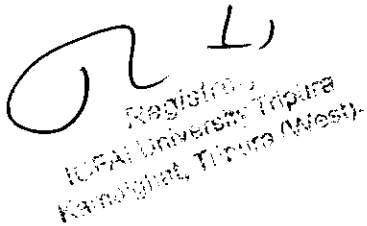 Registrar
ICFAI University Tripura
Kamalghat, Tripura (West)-